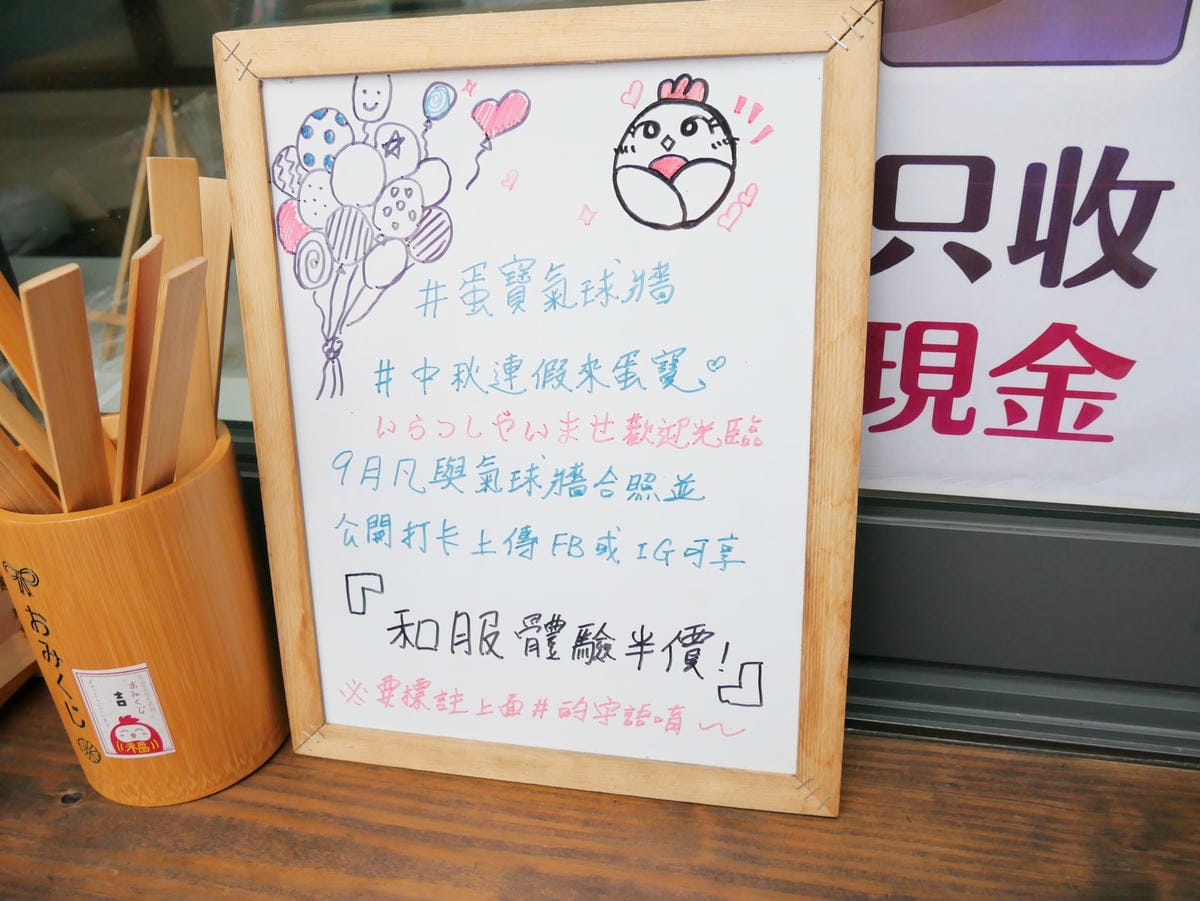 #蛋寶氣球牆
#中秋連假來蛋寶
いらっしゃいませ歡迎光臨
9月凡與氣球牆合照並
公開打卡上傳FB或IG可享
『和服體驗半價!』
※要標註上面#的字語唷～
只收
現金
おみくじ
おみくじ
吉
福